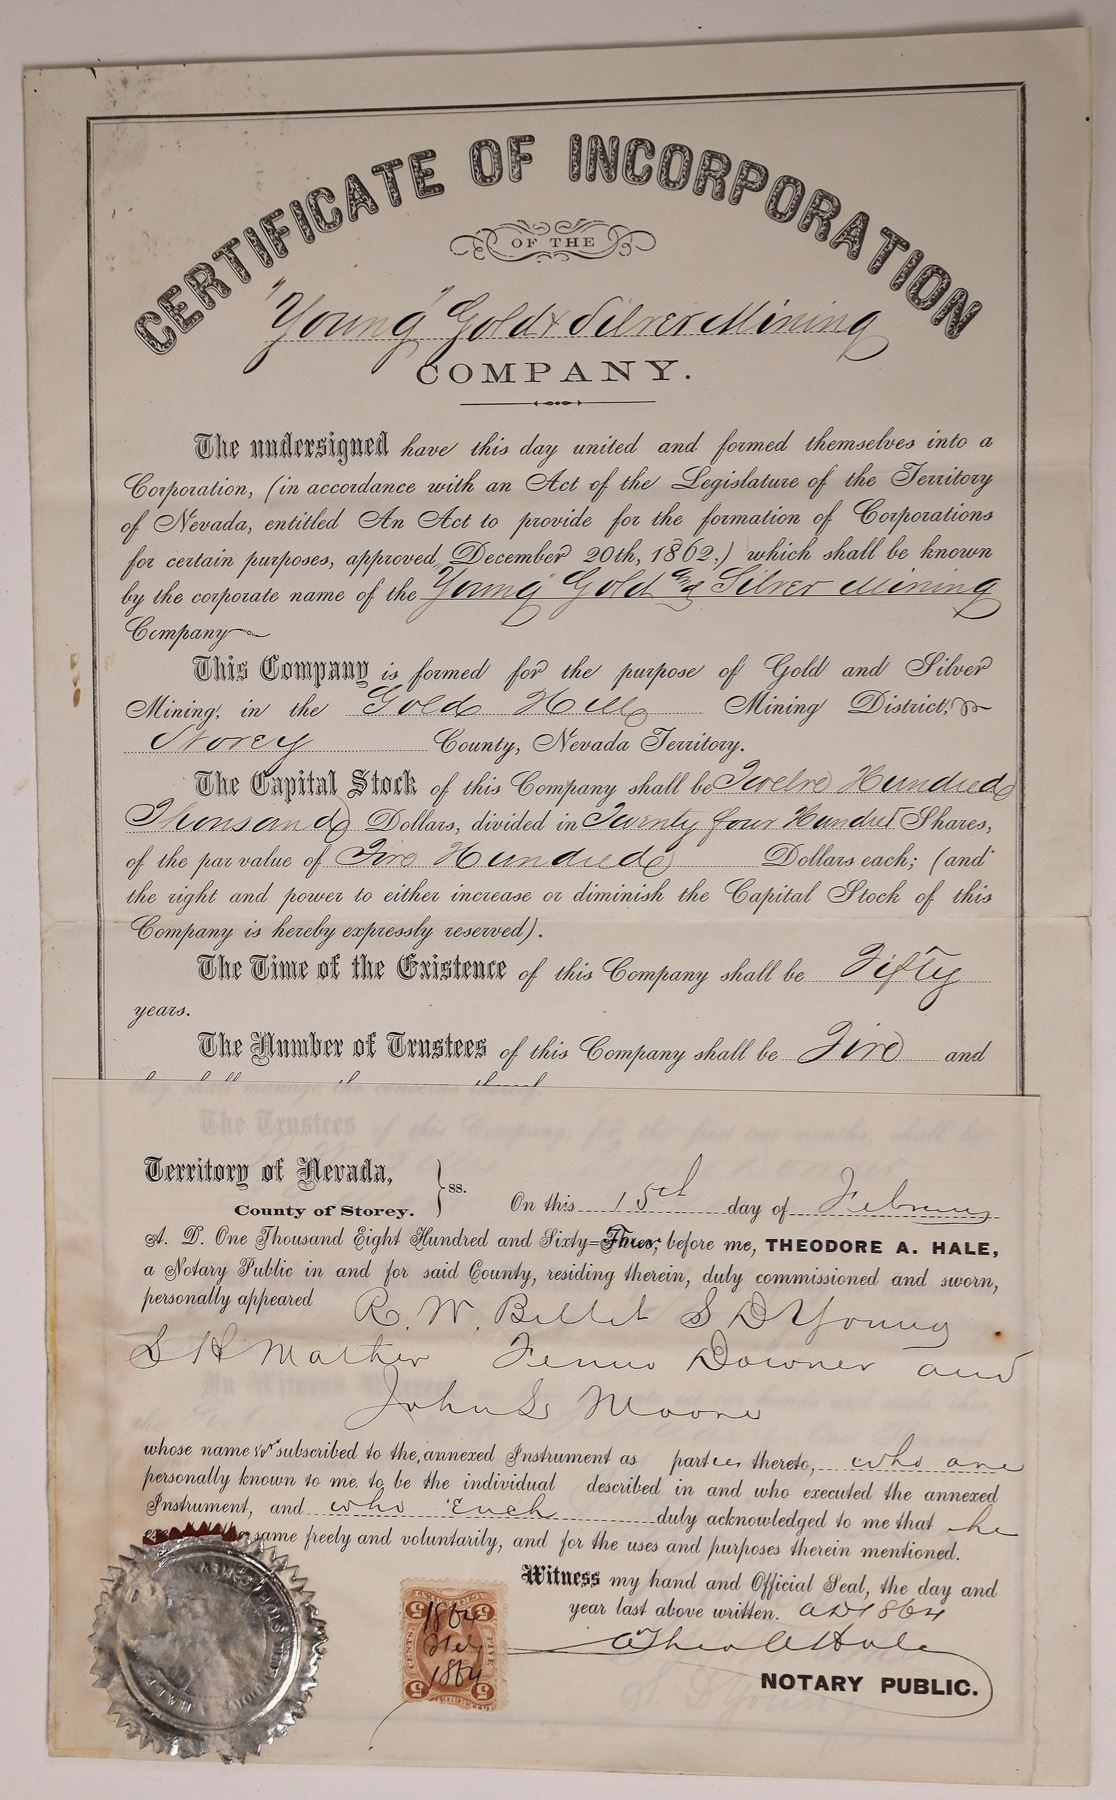 CERTIFICATE OF INCORPORATION
OF THE
"Young" Gold & Silver Mining
COMPANY.
The undersigned have this day united and formed themselves into a
Corporation, (in accordance with an Act of the Legislature of the Territory
of Nevada, entitled An Act to provide for the formation of Corporations
for certain purposes, approved December 20th, 1862,) which shall be known
by the corporate name of the "Young" Gold and Silver Mining
Company
This Company is formed for the purpose of Gold and Silver
Mining, in the Gold Hill Mining District,
Storey County, Nevada Territory.
The Capital Stock of this Company shall be Twelve Hundred
Thousand Dollars, divided in Twenty four Hundred Shares,
of the par value of Five Hundred Dollars each; (and
the right and power to either increase or diminish the Capital Stock of this
Company is hereby expressly reserved).
The Time of the Existence of this Company shall be Fifty
years.
The Number of Trustees of this Company shall be Five and
they shall manage the concerns thereof.
The Trustees of this Company, for the first two months, shall be
Territory of Nevada,
County of Storey. } ss.
On this 15th day of February
A. D. One Thousand Eight Hundred and Sixty-Three, before me, THEODORE A. HALE,
a Notary Public in and for said County, residing therein, duly commissioned and sworn,
personally appeared R. W. Billet S D Young
S H Mather Downer and
John S Moore
whose name subscribed to the annexed Instrument as parties thereto, who are
personally known to me to be the individual described in and who executed the annexed
Instrument, and who Each duly acknowledged to me that he
same freely and voluntarily, and for the uses and purposes therein mentioned.
Witness my hand and Official Seal, the day and
year last above written. AD 1864
Theo A Hale
NOTARY PUBLIC.
5 5
1864
1864
5 5